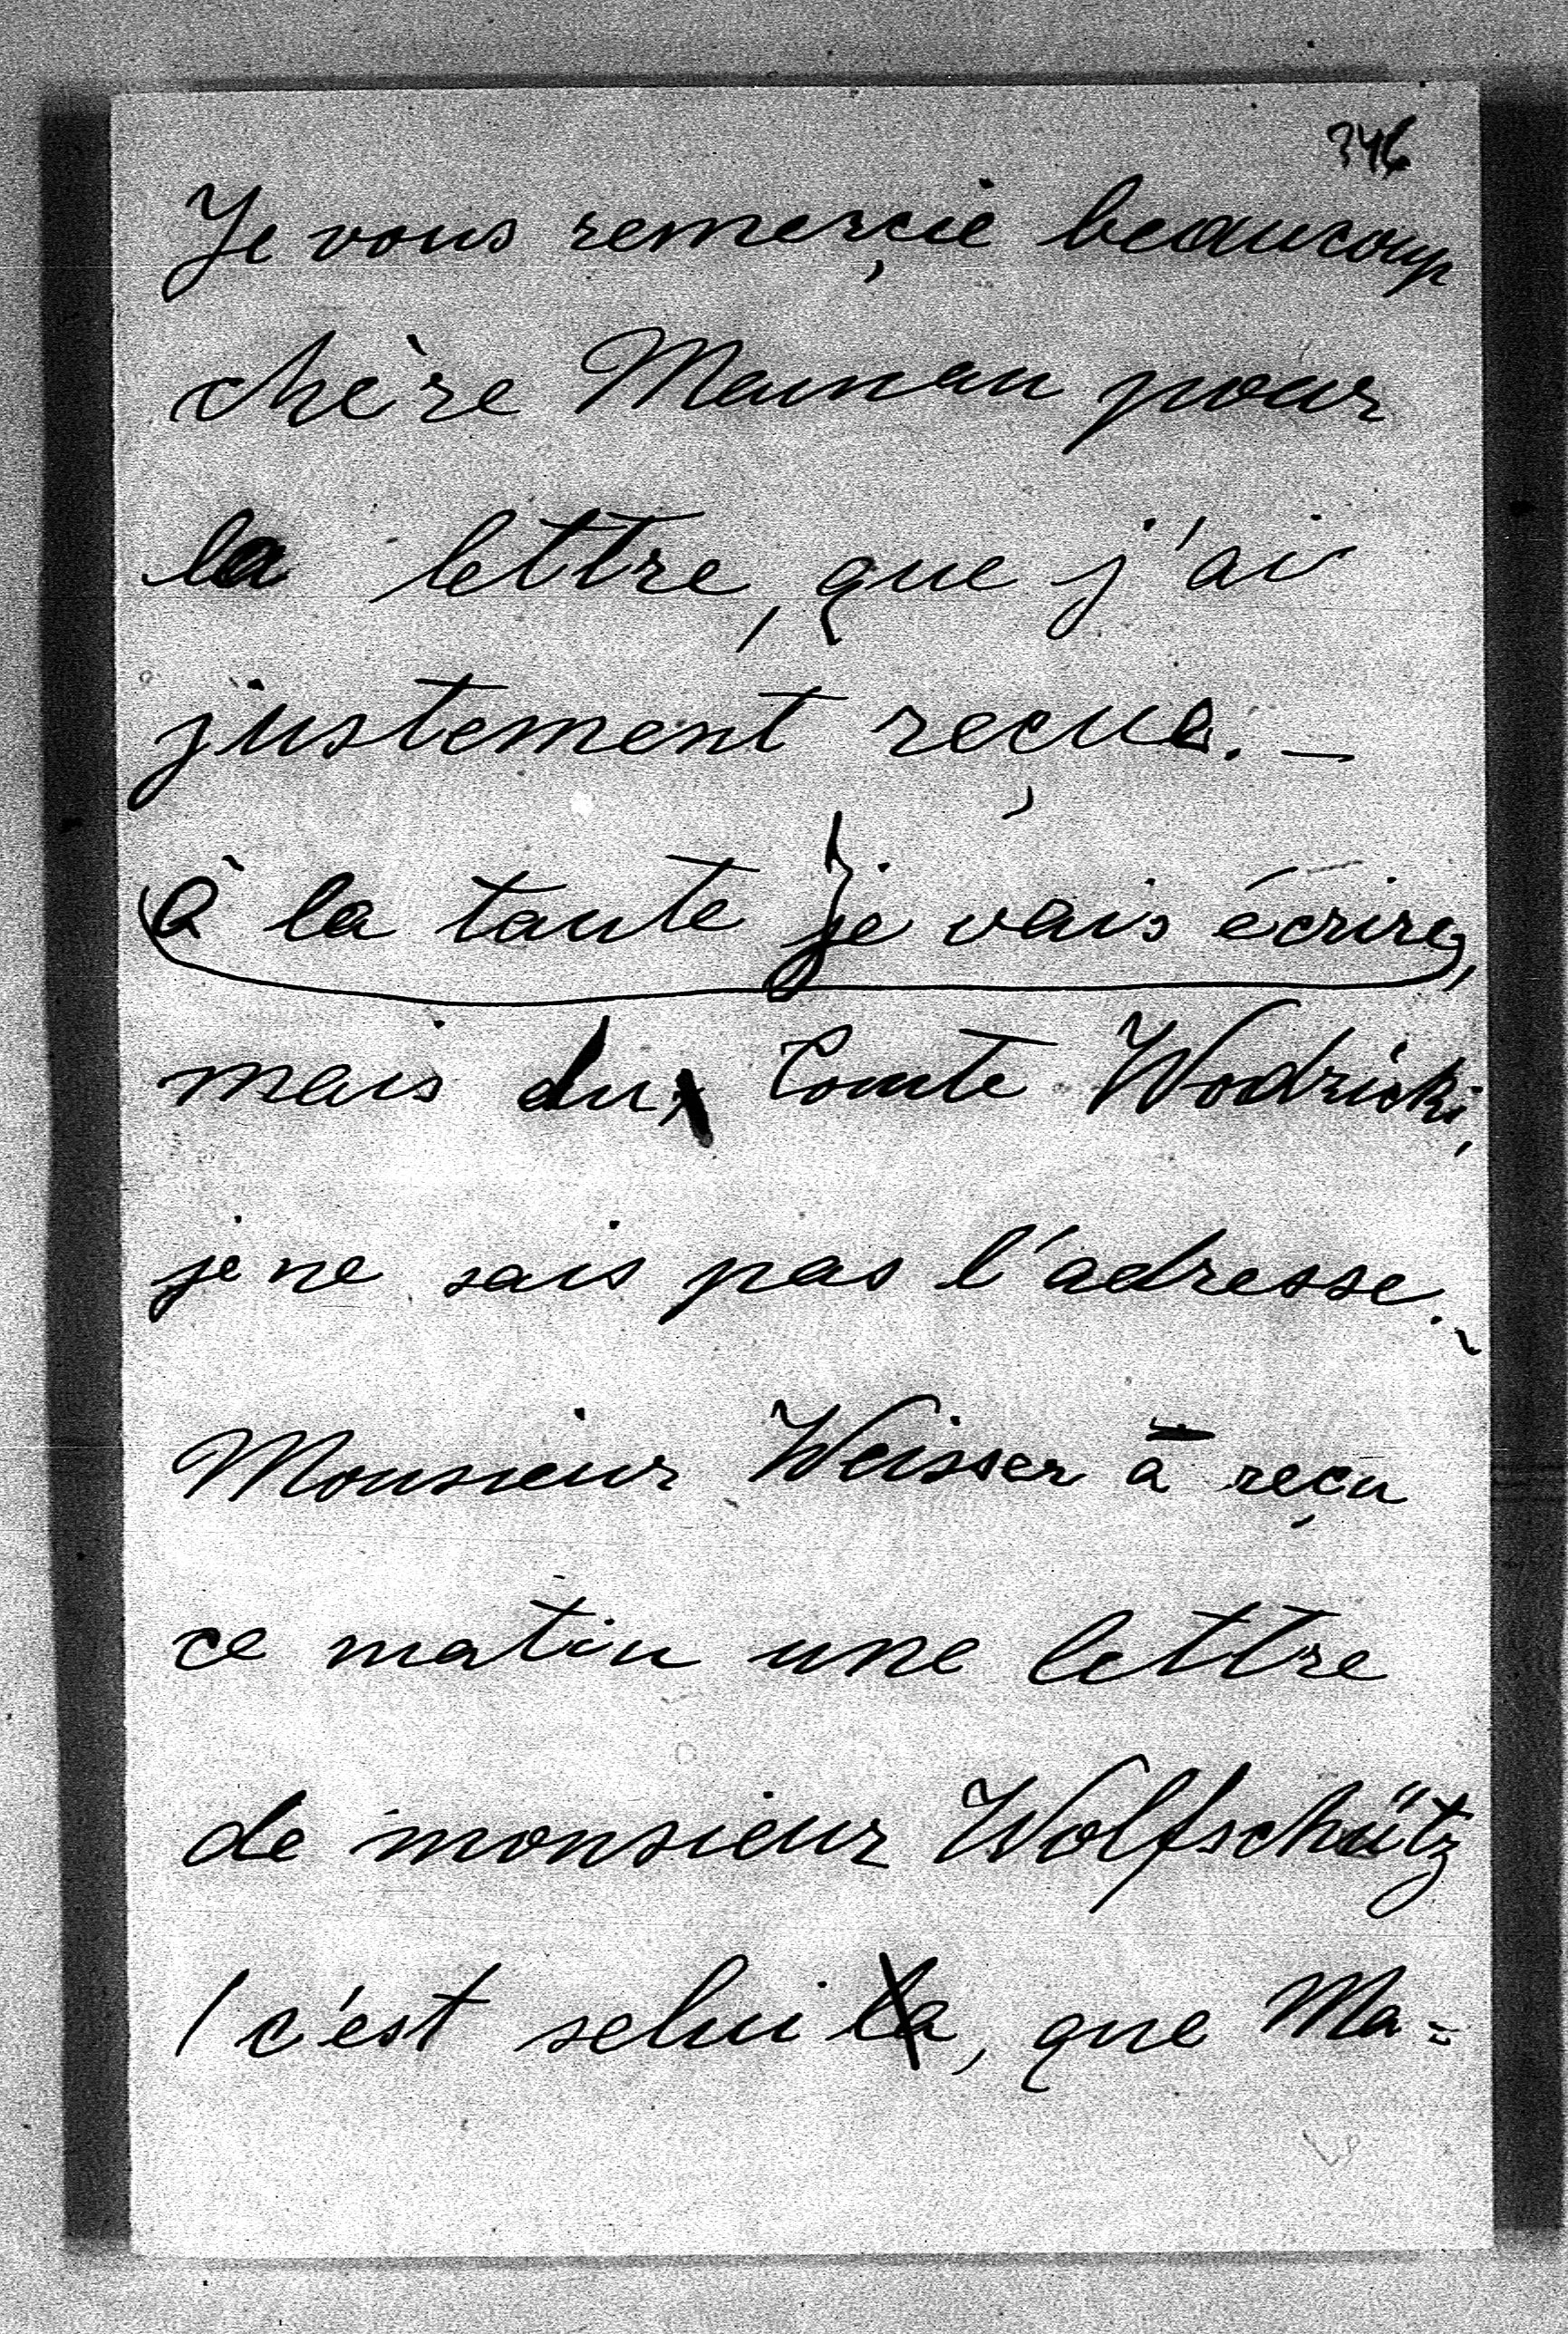 346
Je vous remerçie beaucoup
chère Maman pour
la lettre, que j'ai
justement reçue. —
à la tante je vais écrire,
mais du Comte Wodzicki,
je ne sais pas l'adresse. -
Monsieur Weisser a reçu
ce matin une lettre
de monsieur Wolfschütz
(c'est selui la, que Ma=